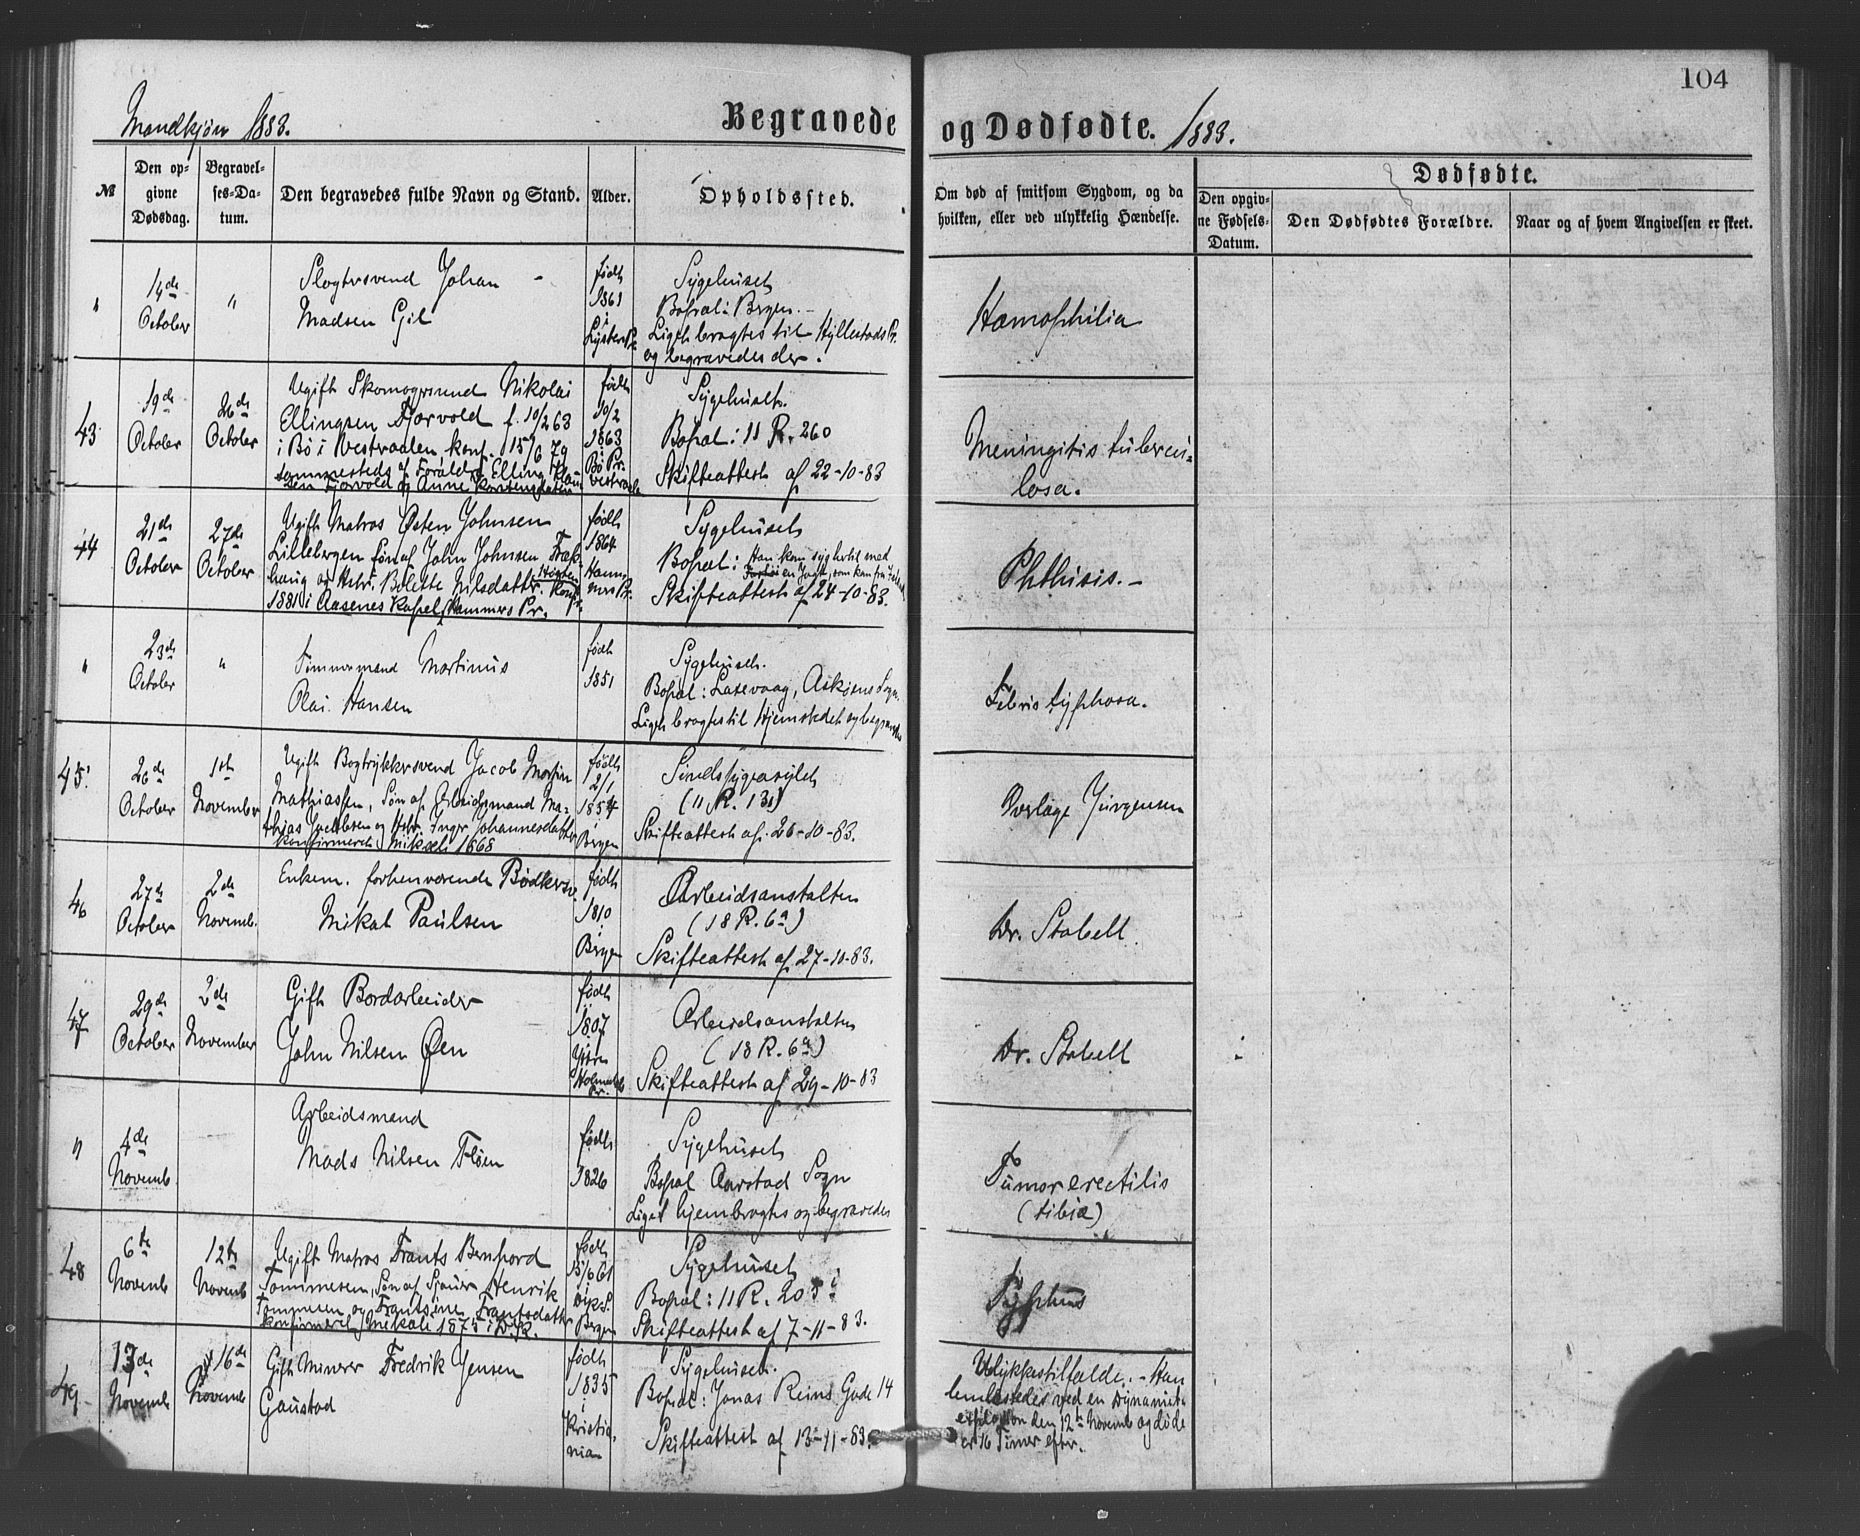 104
Mandkjøn 1883.
Begravede
og Dødfødte. 1883.
№
Den op-
givne
Dødsdag.
Begravel-
ses-Da-
tum.
Den begravedes fulde Navn og Stand.
Alder.
Opholdssted.
Om død af smitsom Sygdom, og da
hvilken, eller ved ulykkelig Hændelse.
Dødfødte.
Den opgiv-
ne Fødsels-
Datum.
Den Dødfødtes Forældre.
Naar og af hvem Angivelsen er skeet.
"
14de
October
"
Slagtersvend Johan
Madsen Gil
født
1861
i
Lyster Pr.
Sygehuset
Bopæl: Bergen.
Liget bragtes til Hyllestads Pr.
og begravedes der.
Hæmophilia
43
19de
October
26de
October
Ugift Skomagersvend Nikolai
Ellingsen Fjorvold f. 10/2 63
i Bø i Vestraalen konf. 15/6 79
sammesteds af Forældre Elling
Fjorvold og Anne
født
10/2
1863
Bø Pr.
Vestraalen
Sygehuset.
Bopæl: 11 R. 260
Skifteattest af 22-10-83
Meningitis tubercu-
losa.
44
21de
October
27de
October
Ugift Matros Østen Johnsen
Lillebergen Søn af John Johnsen
haug og Hstr. Bolette Nilsdatter. konf.
1881 i Aasenes Kapel, Hammers Pr.
født
1864
Ham-
mers Pr.
Sygehuset
Bopæl: Han kom syg hertil med
en Jagt, som kom fra
Skifteattest af 24-10-83.
Phthisis.-
"
23de
October
"
Tømmermand Martinus
Olai Hansen
født
1851
Sygehuset.
Bopæl: Laxevaag, Askøens Sogn.
Liget bragtes til Hjemstedet og begravedes
Febris typhosa.
45
26de
October
1ste
November
Ugift Bogtrykkersvend Jacob Martin
Mathiassen, Søn af Arbeidsmand Ma-
thias Jacobsen og Hstr. Inger Johannesdatter
konfirmeret Mikæli 1868
født
2/1
1854
i
Bergen
Sindssygeasylet
(11 R. 131)
Skifteattest af 26-10-83.
Overlæge Jürgensen
46
27de
October
2de
Novemb.
Enkem. forhenværende Bødkersv.
Mikal Paulsen
født
1810
i
Bergen
Arbeidsanstalten
(18 R. 6a)
Skifteattest af 27-10-83.
Dr. Stabell.
47
29de
October
2de
November
Gift Bordarbeider
John Nilsen Øen
født
1807
Ytre
Holmedals
Pr.
Arbeidsanstalten
(18 R. 6a)
Skifteattest af 29-10-83
Dr. Stabell
"
4de
Novemb.
Arbeidsmand
Mads Nilsen Fløen
født
1826
Sygehuset
Bopæl Aarstad Sogn
Liget hjembragtes og begravedes
Tumor erectilis
(tibiæ)
48
6te
Novemb
12te
Novemb
Ugift Matros Frants Bernhard
Tommesen, Søn af Sjauer Henrik
Tommesen og Frantsine Frantsdatter
konfirmeret Mikæli 1875 i D.K.
født
15/6 61
Bergen
Sygehuset
Bopæl: 11 R. 205
Skifteattest af 7-11-83.
Typhus
49
13de
Novemb
16de
Novemb
Gift Minerer Fredrik Jensen
Gaustad
født
1835
i
Kristia-
nia
Sygehuset.
Bopæl: Jonas Reins Gade 14
Skifteattest af 13-11-83.
Ulykkestilfælde. - Han
lemlæstedes ved en Dynamit-
explosion den 12te Novemb og døde
16 Timer efter.